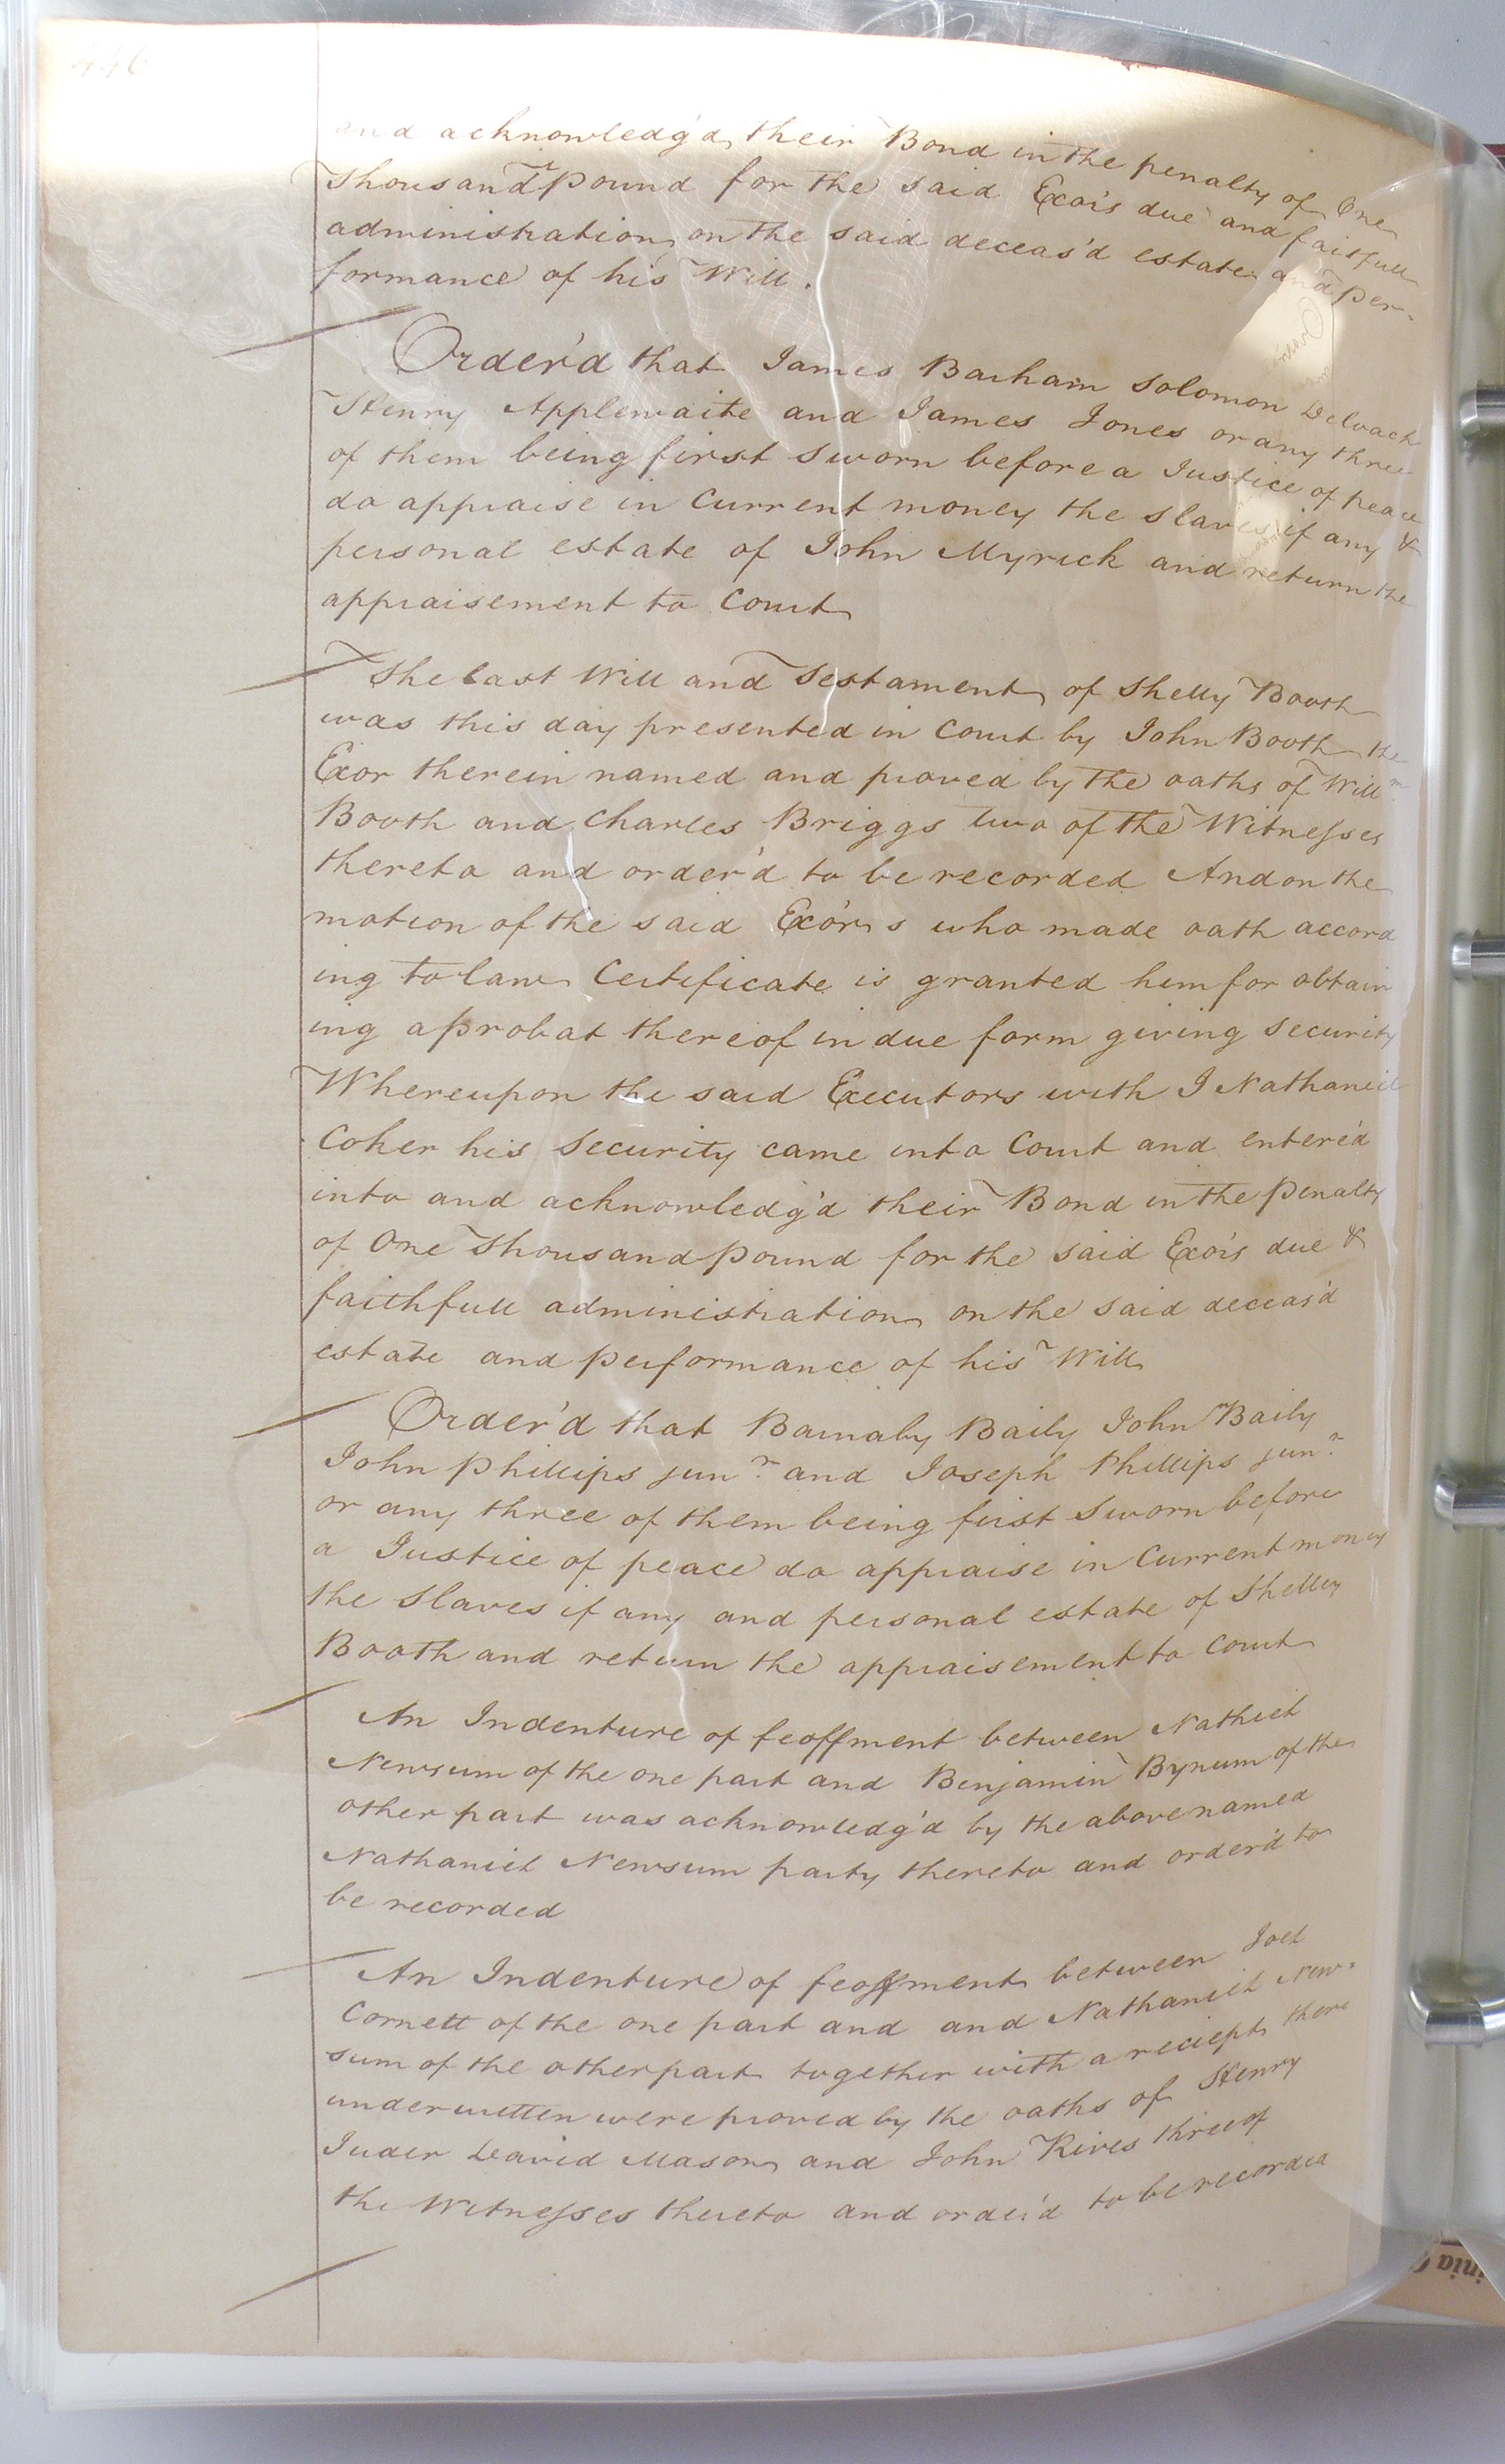 446
and acknowledg'd their Bond in the penalty of One
Thousand Pound for the said Exo'rs due and faitfull
administration on the said deceas'd estate and Per-
formance of his Will.
Order'd that James Barham Solomon Deloach
Henry Applewaite and James Jones or any three
of them being first sworn before a Justice of peace
do appraise in Current money the slaves if any &
personal estate of John Myrick and return the
appraisement to Court
The Last Will and Testament of Shelly Booth
was this day presented in Court by John Booth the
Exor therein named and proved by the oaths of Will.m
Booth and Charles Briggs two of the Witnesses
thereto and order'd to be recorded And on the
motion of the said Exo'rs who made oath accord
ing to law Certificate is granted him for obtain
ing a probat thereof in due form giving security
Whereupon the said Executors with J Nathaniel
Coker his Security came into Court and entere'd
into and acknowledg'd their Bond in the Penalty
of One Thousand Pound for the said Exo'rs due &
faithfull administration on the said deceas'd
estate and Performance of his Will
Order'd that Barnaby Baily John Baily
John Phillips jun.r and Joseph Phillips jun.r
or any three of them being first sworn before
a Justice of peace do appraise in Current money
the Slaves if any and personal estate of Shelley
Booth and return the appraisement to Court
An Indenture of feoffment between Nathiel
Newsum of the one part and Benjamin Bynum of the
other part was acknowledg'd by the above named
Nathaniel Newsum party thereto and order'd to
be recorded
An Indenture of feoffment between Joel
Cornett of the one part and and Nathaniel New-
sum of the other part together with a reciept there
underwritten were proved by the oaths of Henry
Juder David Mason and John Rives three of
the Witnesses thereto and order'd to be recorded